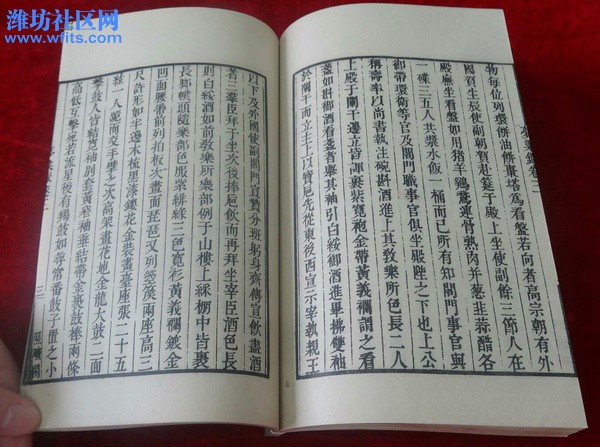 潍坊社区网
www.wfits.com
夢粱錄卷三
物每位列環餅油餅棗塔爲看盤若向者高宗朝有外
國賀生辰使副朝賀赴筵于殿上坐使副餘三節人在
殿廡坐看盤如用猪羊雞鵞連骨熟肉并葱韭蒜醋各
一碟三五人共漿水飯一桶而已所有知閤門事官與
御帶環衞等官及閤門職事官俱坐殿陛之下也上公
稱壽率以尚書執注碗斟酒進上其敎樂所色長二人
上殿于闌干邊立皆諢裹紫寬袍金帶黃義襴謂之看
盞如斟御酒看盞者舉其袖引白綏御酒進畢拂雙袖
於闌干而立主上以寶巵先從東後西宣示宰執親王
以下及外國使副閤門直贊分班躬身齊傳宣飲盡酒
者三羣臣拜于坐次後捧巵飲而再拜坐宰臣酒色長
則白綏酒如前敎樂所樂部例于山樓上綵棚中皆裹
長脚幞頭隨樂部色服紫緋綠三色寬衫黃義襴鍍金
凹面腰帶前列拍板次畫面琵琶又列箜篌兩座高三
尺許形如半邊木梳黑漆鏤花金裝畫臺座張二十五
絃一人跪而交手擘之次高架畫花地金龍大鼓二面
擊鼓人皆結寬袖別套黃窄袖垂結帶金裹鼓棒兩條
高低互擊宛若流星後有羯鼓如尋常番鼓子置之小
三
照曠閣